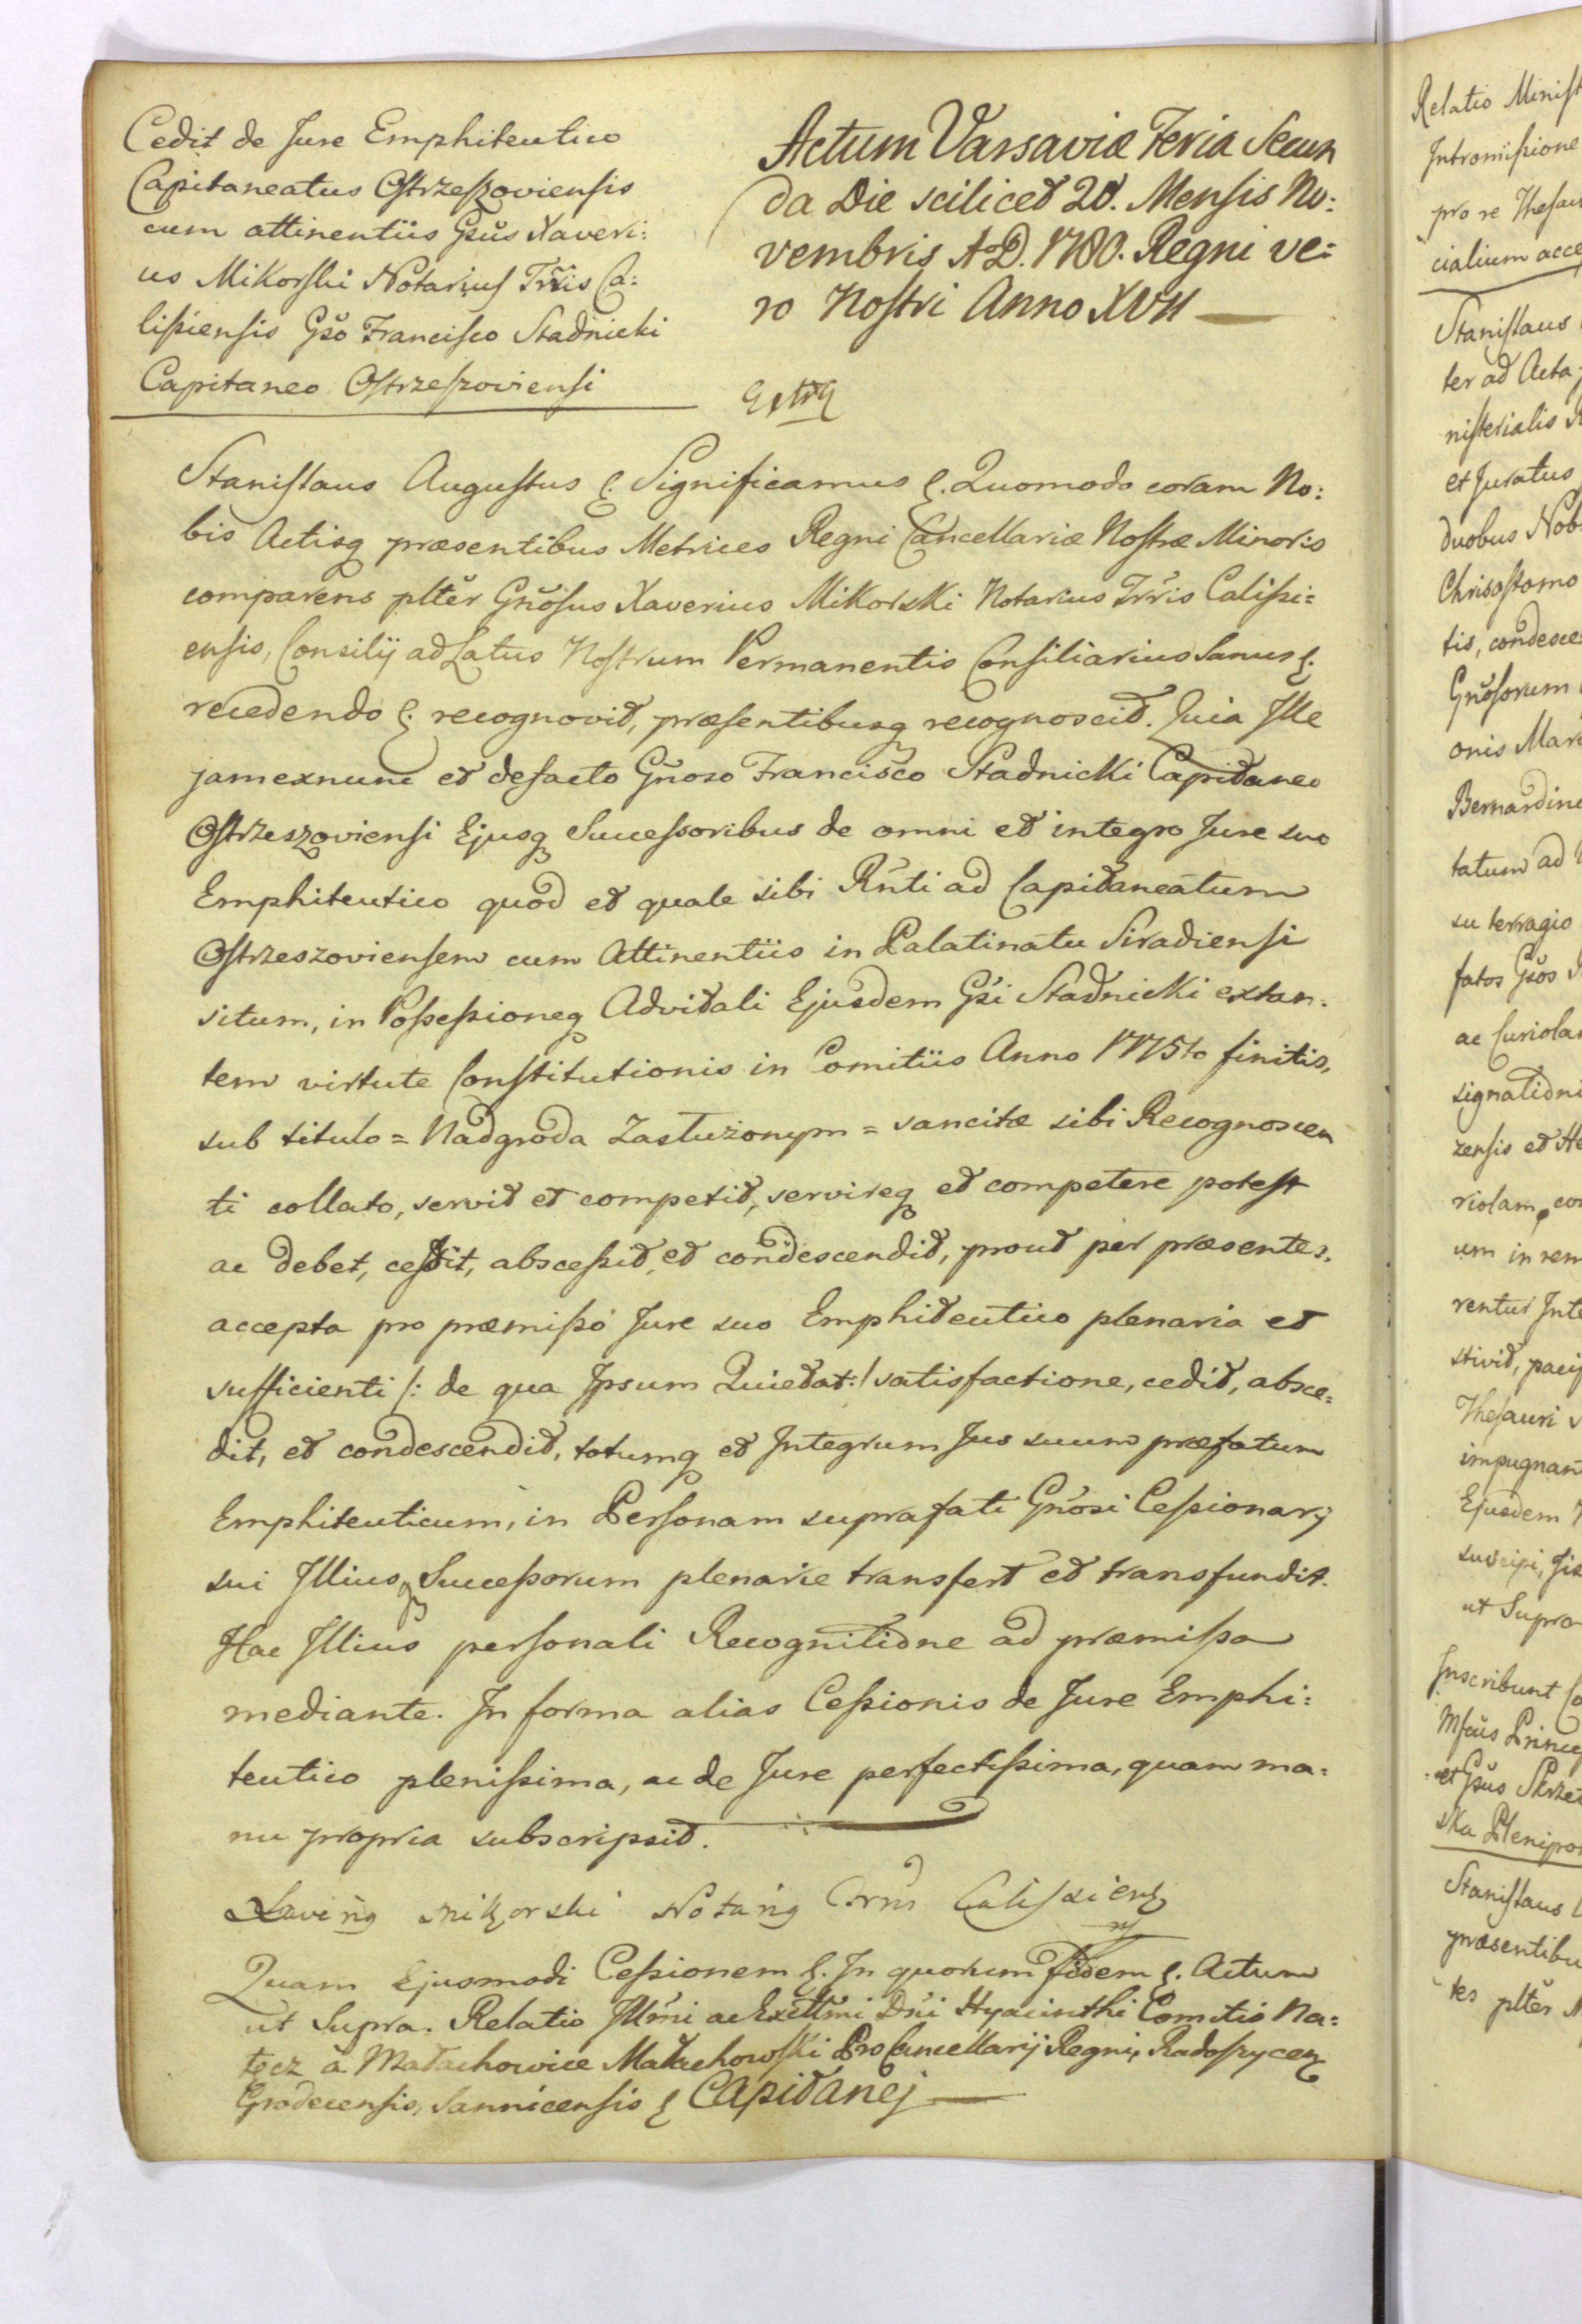 Cedit de Jure Emphiteutico
Capitaneatus Ostrzeszoviensis
cum attinentiis Gsus Xaveri:
us Mikorski Notarius Trris Ca:
lissiensis Gso Francisco Stadnicki
Capitaneo Ostrzeszoviensi
Actum Varsaviæ Feria Secun
da Die scilicet 20. Mensis No:
vembris A.D. 1780. Regni ve:
ro Nostri Anno XVII
Stanislaus Augustus &. Significamus &. Quomodo coram No:
bis Actisq præsentibus Metrices Regni Cancellariæ Nostræ Minoris
comparens plter Gnosus Xaverius Mikorski Notarius Trris Calissi=
ensis, Consilij ad Latus Nostrum Permanentis Consiliarius Sanus &.
recedendo &. recognovit, præsentibusq recognoscit. Quia Ille
jam exnunc et defacto Gnoso Francisco Stadnicki Capitaneo
Ostrzeszoviensi Ejusq Successoribus de omni et integro Jure suo
Emphiteutico quod et quale sibi Rnti ad Capitaneatum
Ostrzeszoviensem cum Attinentiis in Palatinatu Siradiensi
situm, in Possessioneq Advitali Ejusdem Gsi Stadnicki extan:
tem virtute Constitutionis in Comitiis Anno 1775to finitis,
sub titulo = Nadgroda Zasłużonym = sancitæ sibi Recognoscen
ti collato, servit et competit, servireq et competere potest
ac debet, cessit, abscessit, et condescendit, prout per præsentes.
accepta pro præmisso Jure suo Emphiteutico plenaria et
sufficienti /: de qua Ipsum Quietat :/ satisfactione, cedit, absce=
dit, et condescendit, totumq et Integrum Jus suum præfatum
Emphiteuticum, in Personam suprafati Gnosi Cessionarij
sui Illiusq Successorum plenarie transfert et transfundit.
Hac Illius personali Recognitione ad præmissa
mediante. In forma alias Cessionis de Jure Emphi:
teutico plenissima, ac de Jure perfectissima, quam ma:
nu propria subscripsit.
Xaverig Mikorski Notarig Trris Calissieng
Quam Ejusmodi Cessionem &. In quorum fidem &. Actum
ut Supra. Relatio Illmi ac Excllmi Dni Hyacinthi Comitis Na:
łęcz a Małachowice Małachowski ProCancellarij Regni, Radoszyceng
Grodecensis, Sannicensis & Capitanej
Relatio Minist
Intromissione
pro re Thesau
cialium acce
Stanislaus
ter ad Acta
nisterialis
et Juratus
duobus Nob
Chrisostomo
tis, condesce
Gnosorum
onis Mar
Bernardin
tatum ad
su terragio
fatos Gsos
ac Curiola
signationi
zensis et
riolam, co
um in rem
rentur Int
stivit, paci
Thesauri
impugnan
Ejusdem
suscipi,
ut Supra
Inscribunt Co
Princ
et Gsus Skrzet
ska Plenipo
Stanislaus
præsentibu
tes plter